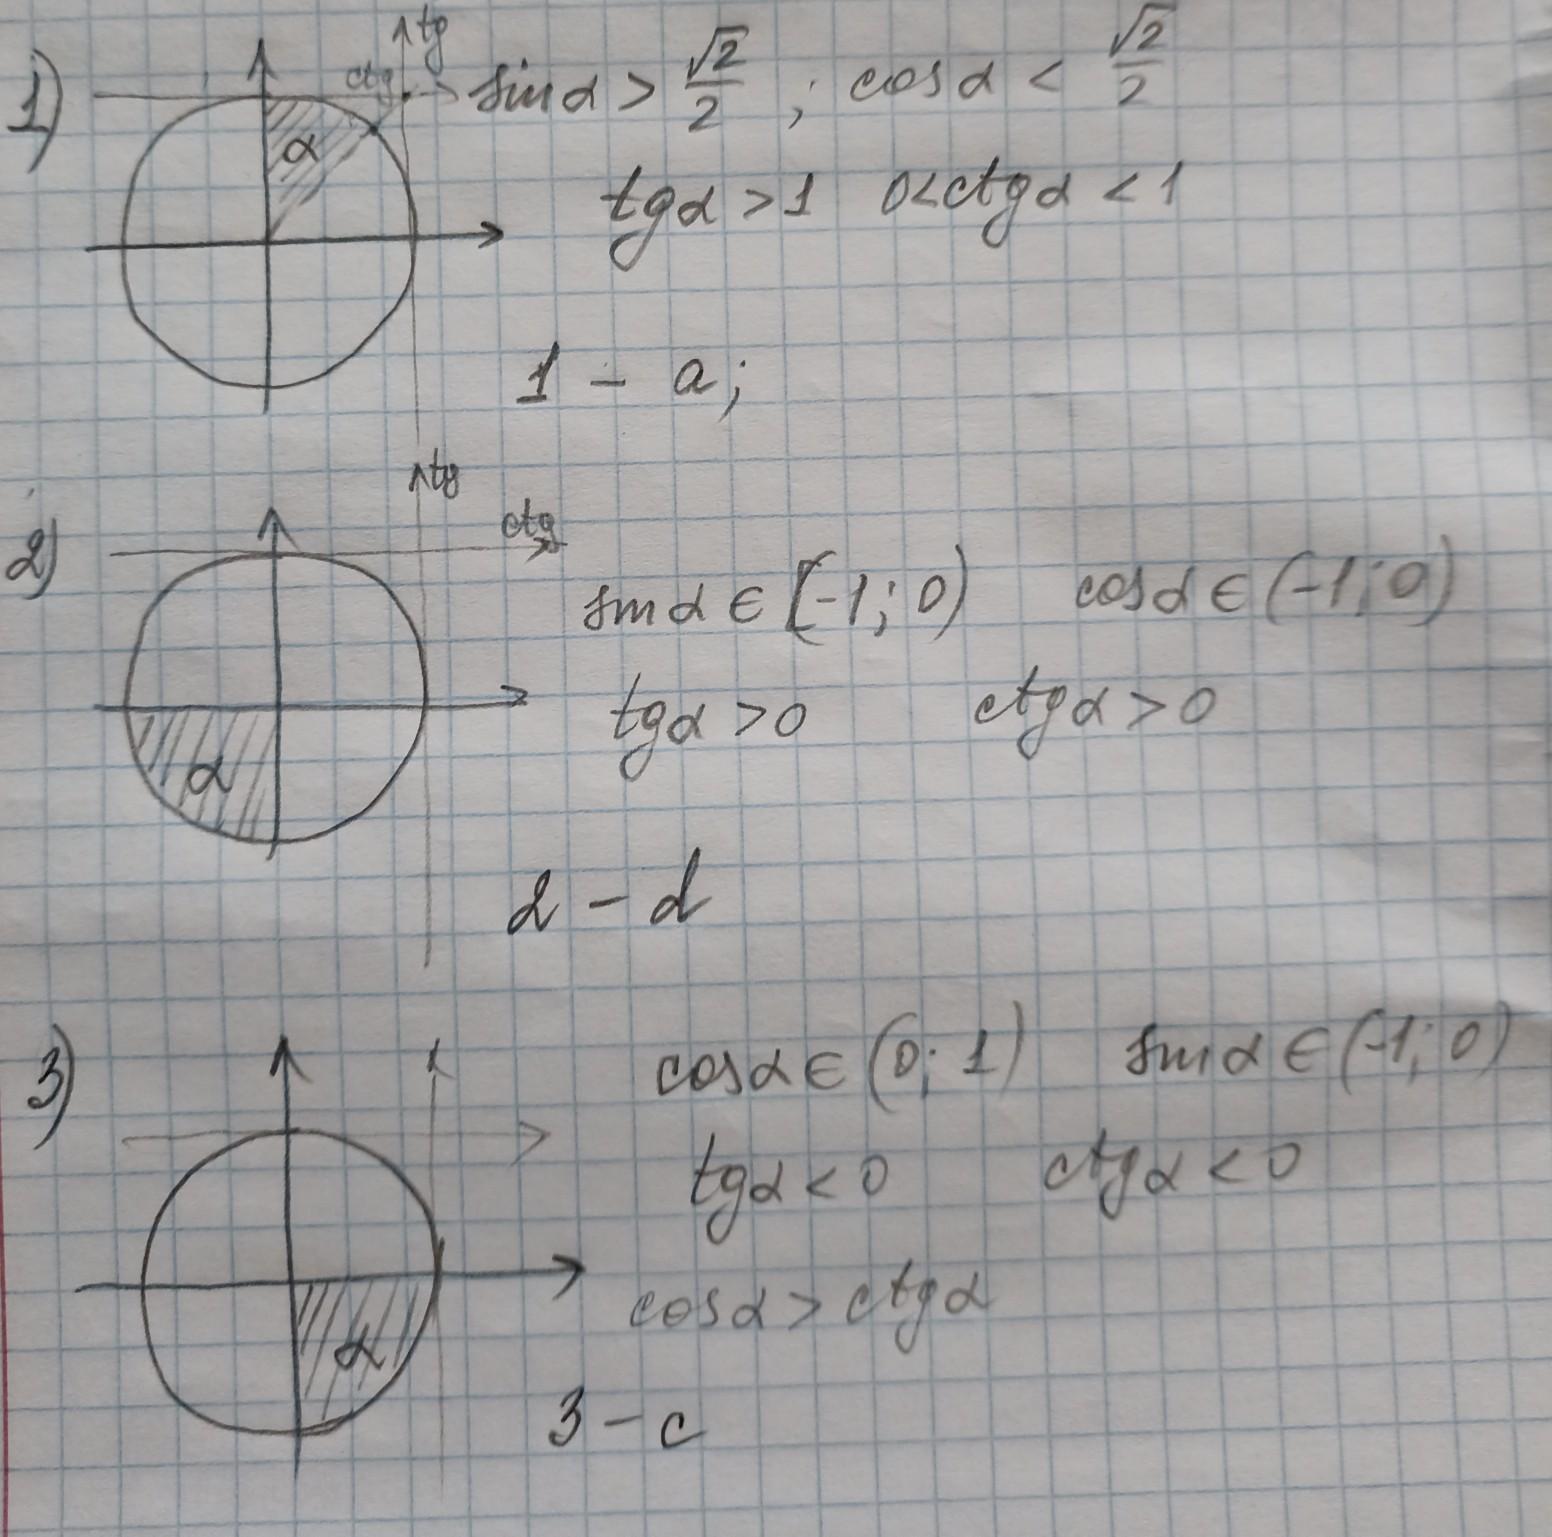 1) ctg tg sin α > √2/2 ; cos α < √2/2
α
tg α > 1 0 < ctg α < 1
1 - a;
2) tg ctg
sin α ∈ (-1; 0) cos α ∈ (-1; 0)
tg α > 0 ctg α > 0
α
2 - d
3) cos α ∈ (0; 1) sin α ∈ (-1; 0)
tg α < 0 ctg α < 0
cos α > ctg α
α
3 - c